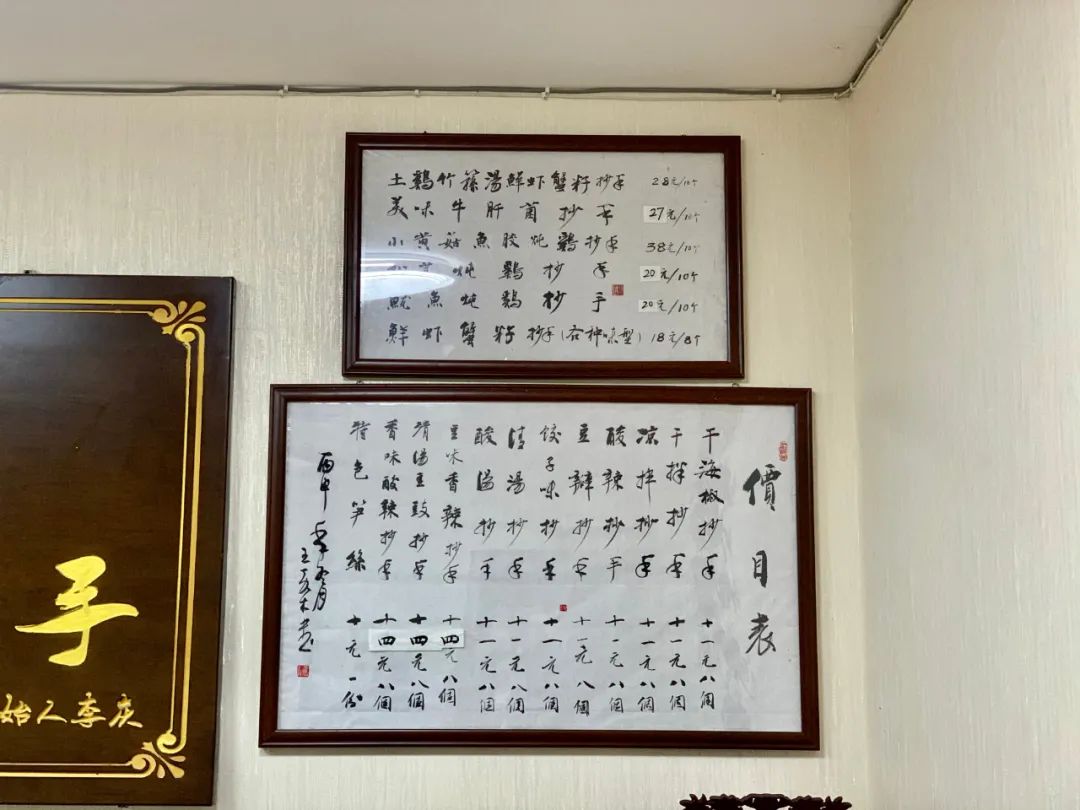 土鷄竹蓀湯鮮虾蟹籽抄手 28元/10个
美味牛肝菌抄手 27元/10个
小黄菇魚胶炖鷄抄手 38元/10个
炖鷄抄手 20元/10个
魷魚炖鷄抄手 20元/10个
鮮虾蟹籽抄手（各种味型）18元/8个
價目表
干海椒抄手 十一元八個
干拌抄手 十一元八個
凉拌抄手 十一元八個
酸辣抄手 十一元八個
豆瓣抄手 十一元八個
饺子味抄手 十一元八個
清湯抄手 十一元八個
酸湯抄手 十一元八個
豆味香辣抄手 十四元八個
清湯豆豉抄手 十四元八個
香味酸辣抄手 十四元八個
特色笋絲 十元一份
丙申年
手
始人李庆